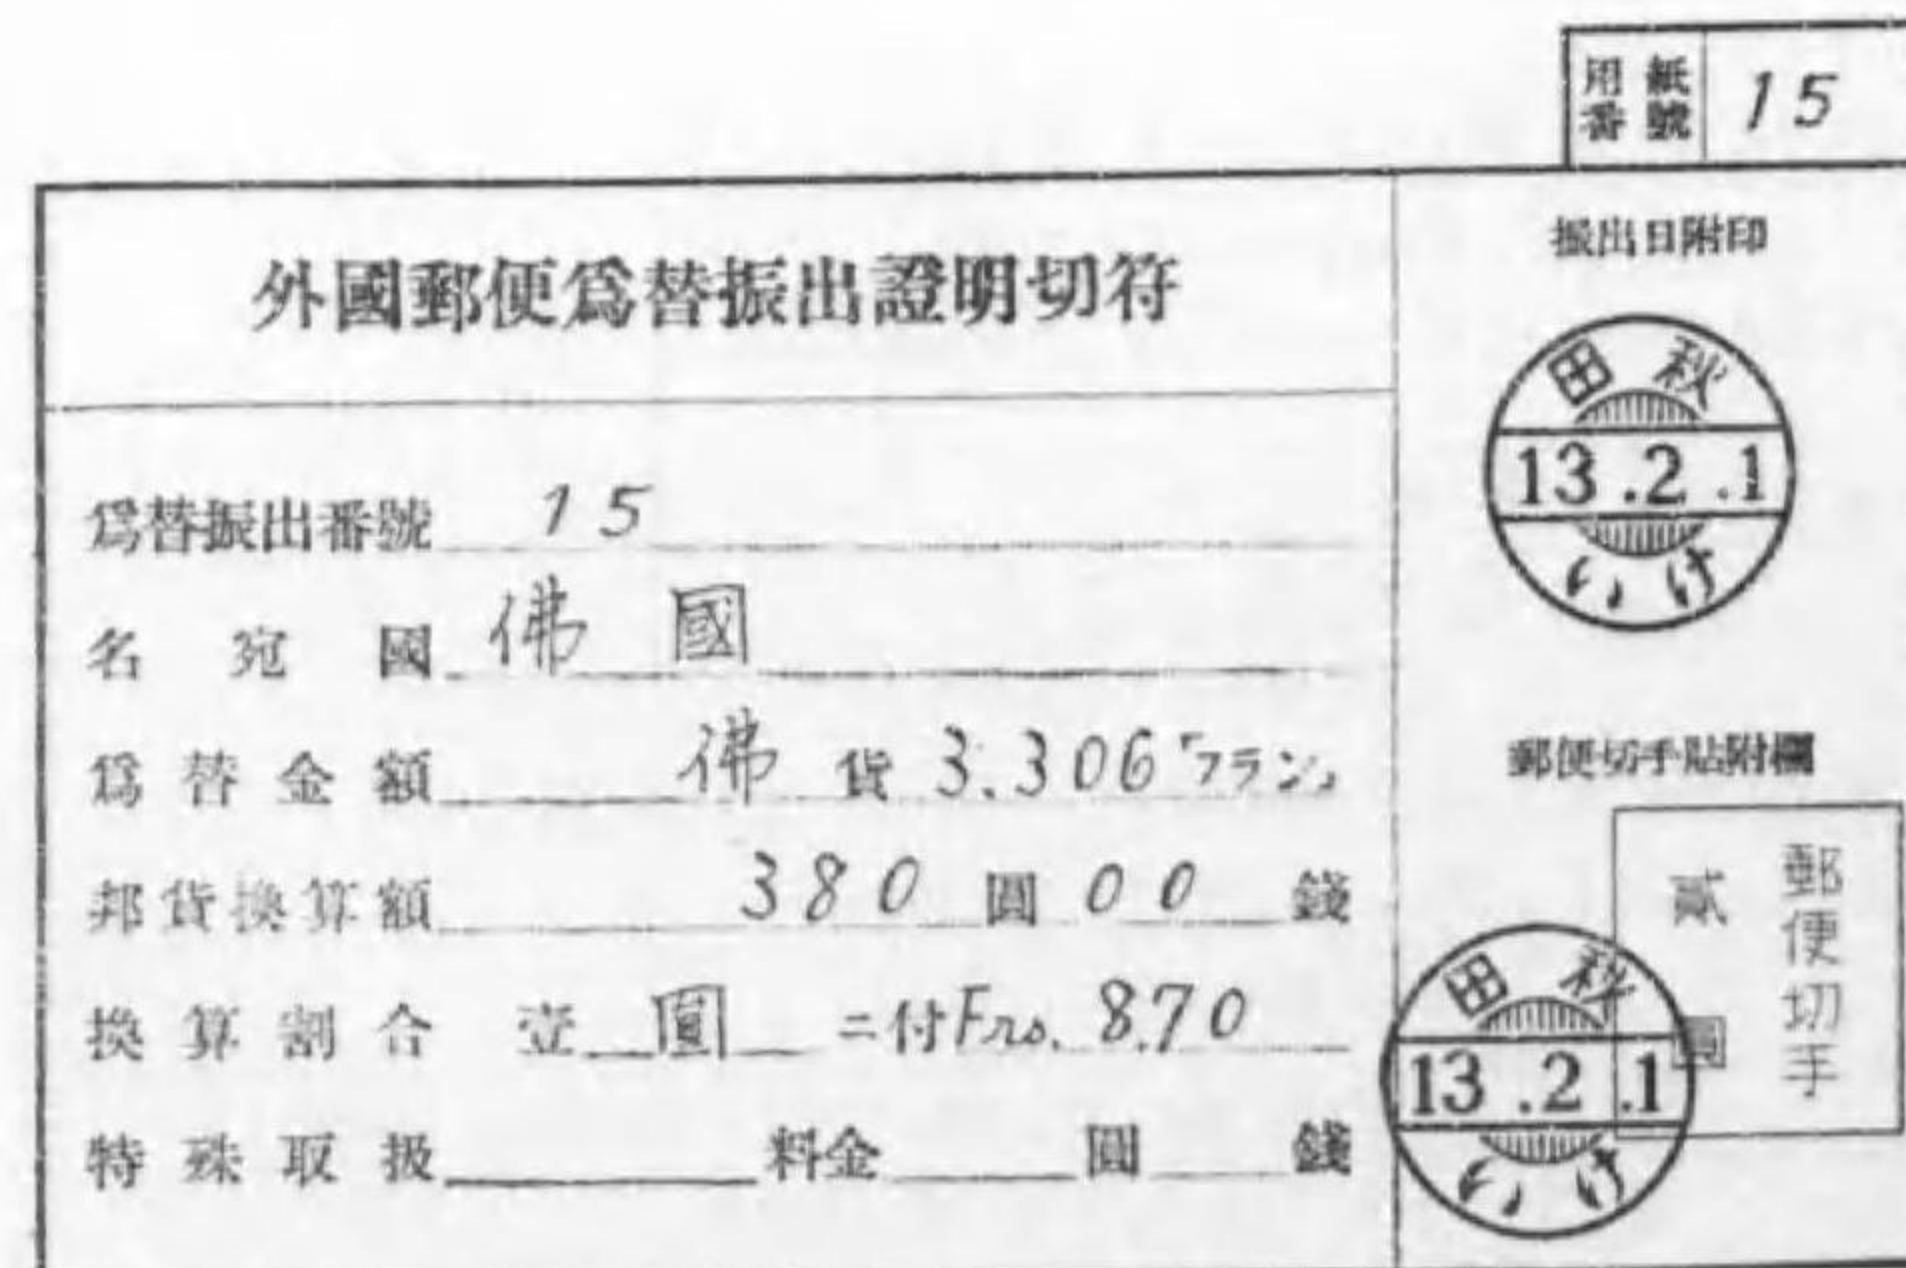 用紙番號 15
外國郵便爲替振出證明切符
爲替振出番號 15
名宛國 佛國
爲替金額 佛貨 3.306「フラン」
邦貨換算額 380 圓 00 錢
換算割合 壹圓ニ付Frs. 8.70
特殊取扱 料金 圓 錢
振出日附印
田秋
13.2.1
いけ
郵便切手貼附欄
郵便切手
貳圓
田秋
13.2.1
いけ